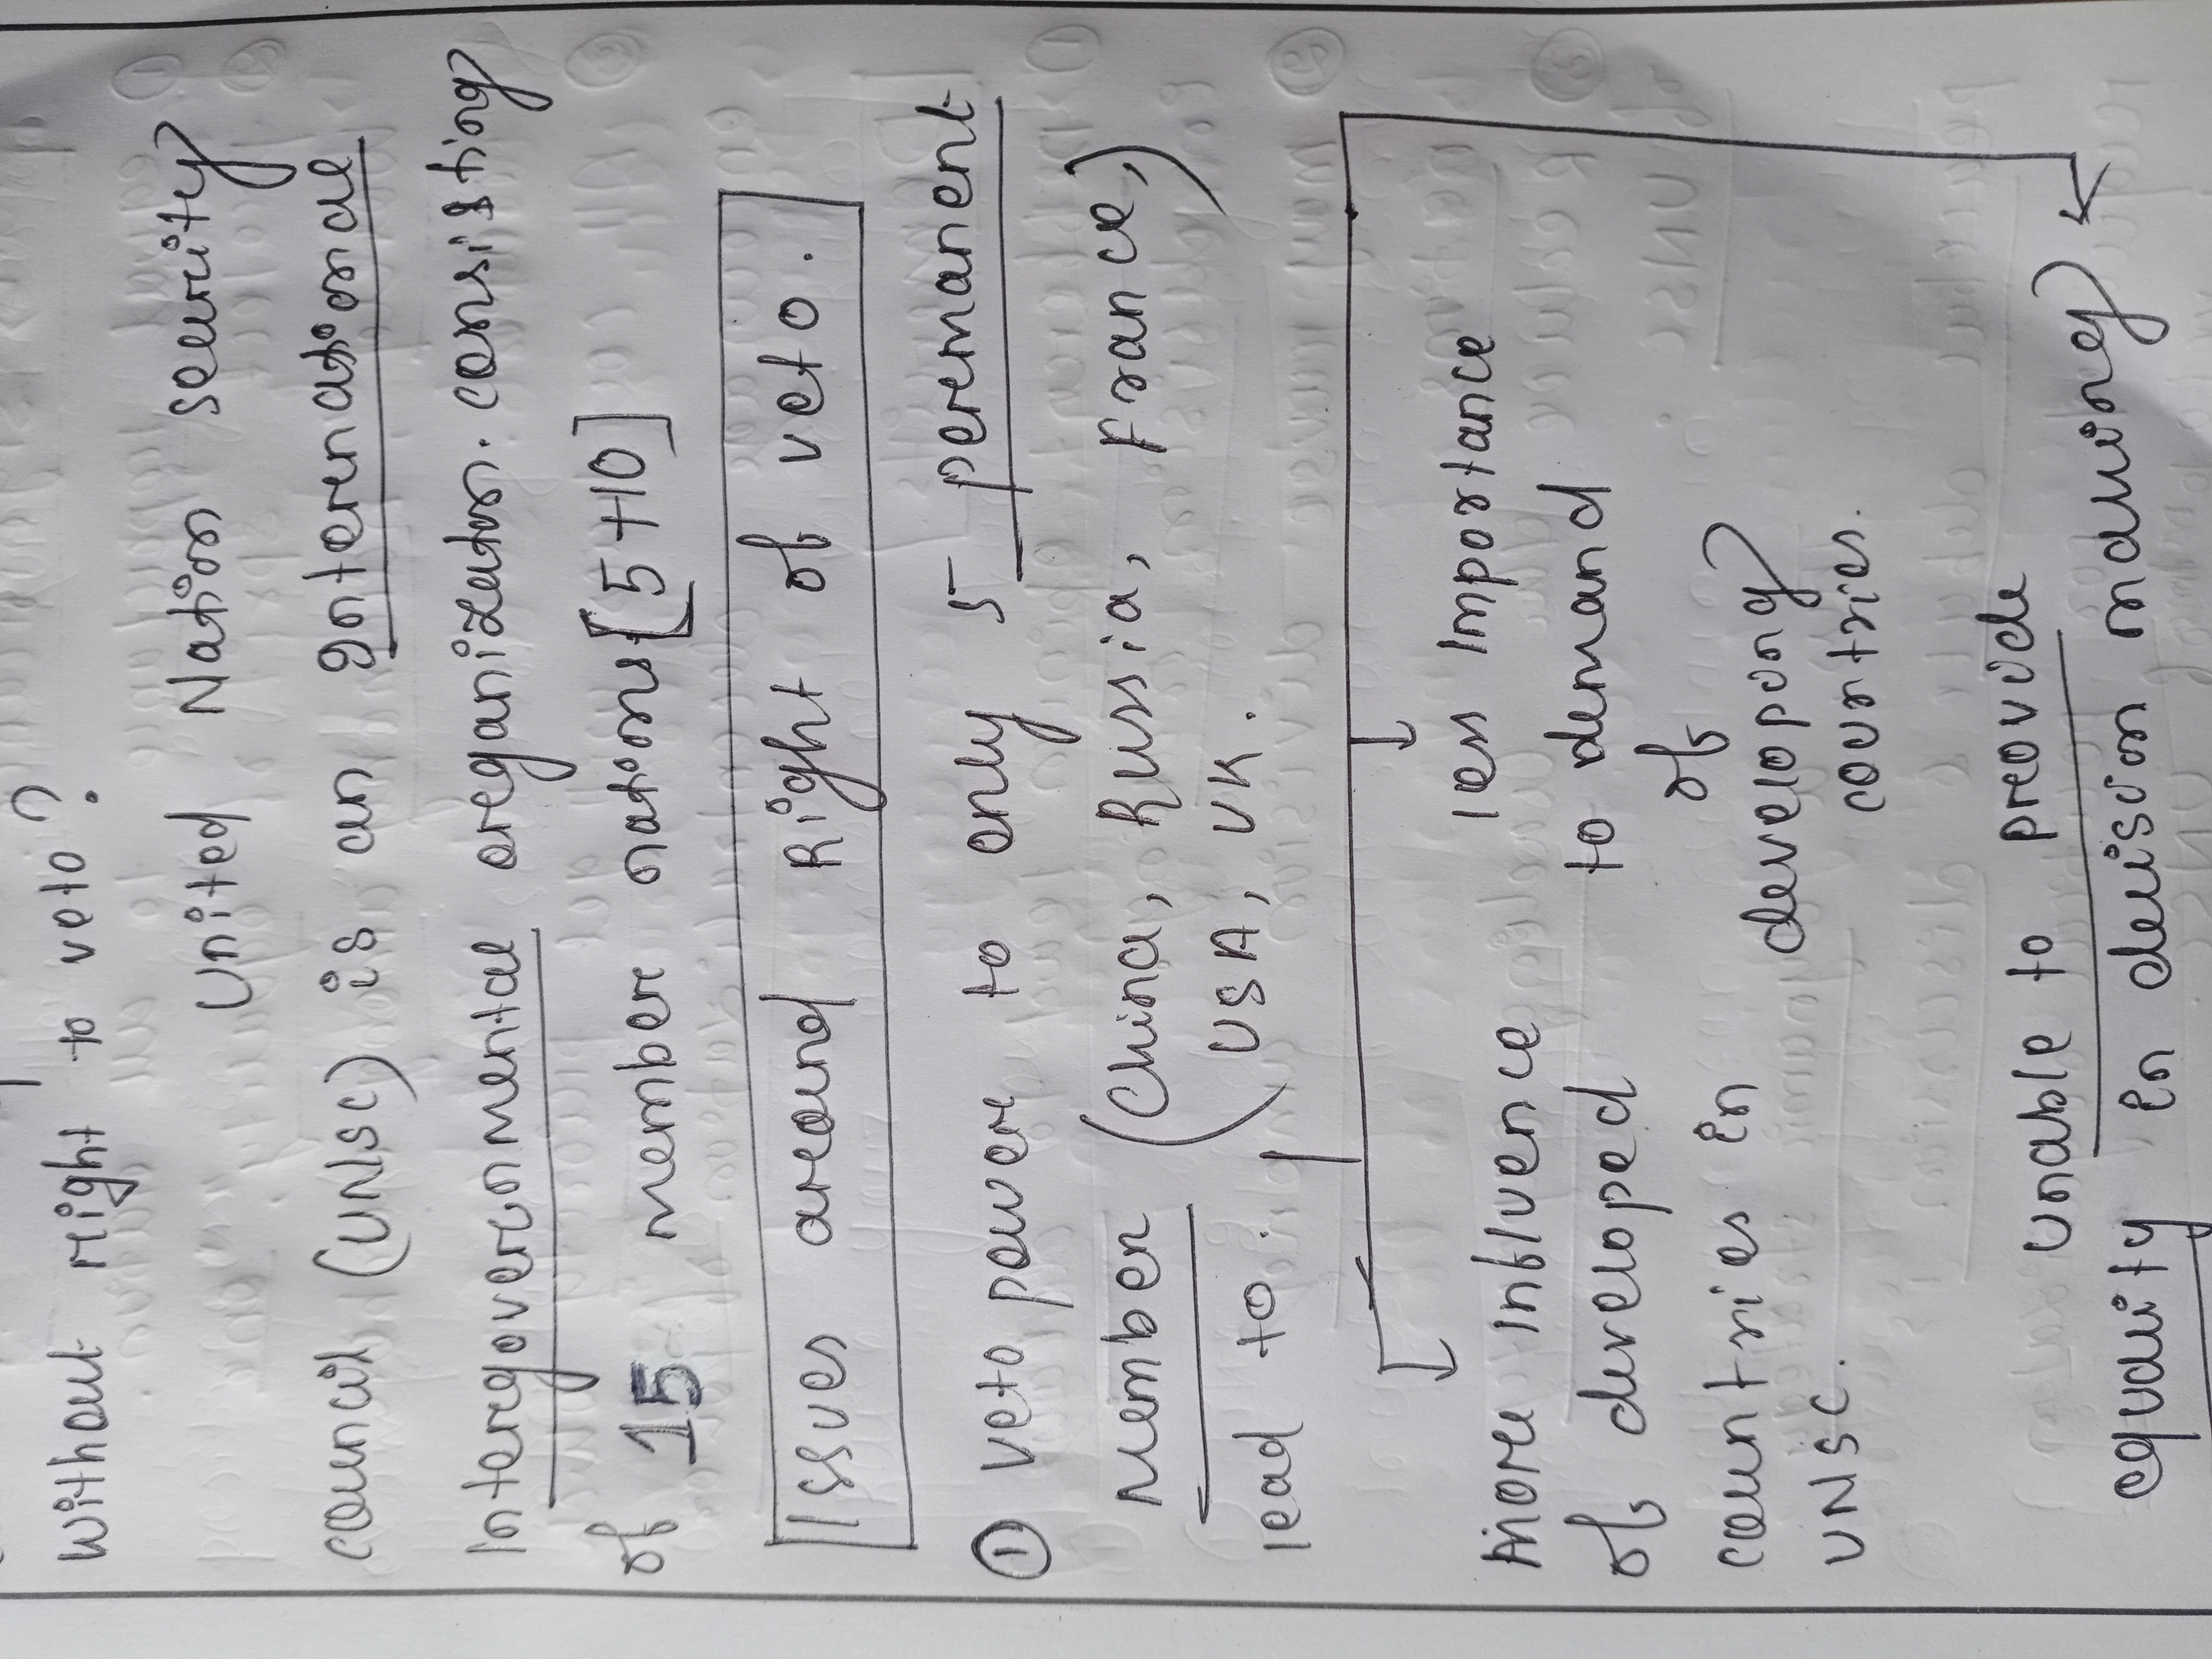 without right to veto?
United Nation security
council (UNSC) is an International
Intergovernmental organization. consisting
of 15 member nations [5+10]
Issues around Right of veto.
① veto power to only 5 permanent
member (China, Russia, France,
USA, UK.)
lead to.
More influence
of developed
countries in
UNSC.
less importance
to demand
of
developing
countries.
unable to provide
equality in decision making